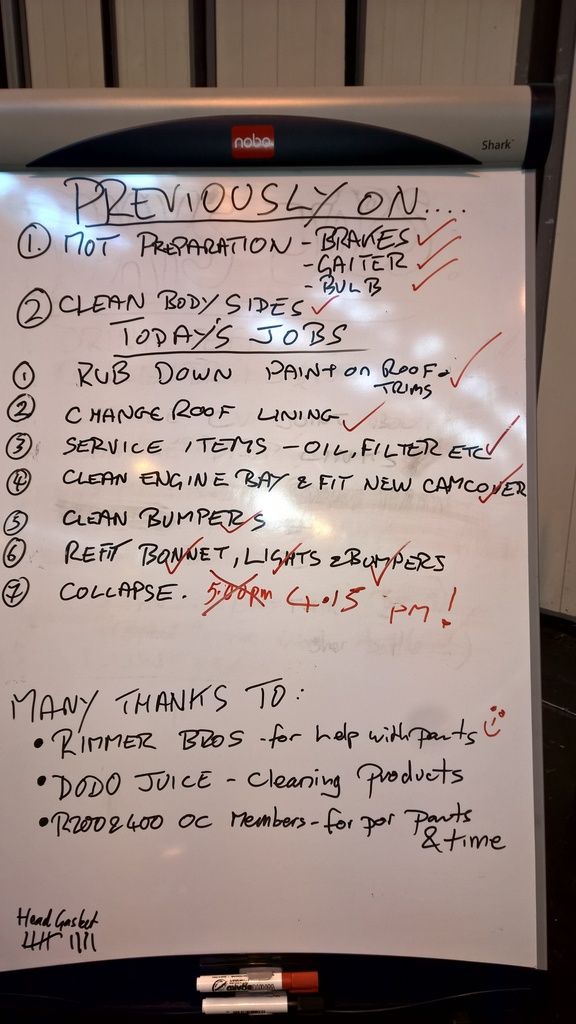 nobo
Shark
PREVIOUSLY ON....
1. MOT PREPARATION - BRAKES
- GAITER
- BULB
2 CLEAN BODY SIDES
TODAY'S JOBS
1 RUB DOWN PAINT on ROOF
TRIMS
2 CHANGE ROOF LINING
3 SERVICE ITEMS - OIL, FILTER ETC
4 CLEAN ENGINE BAY & FIT NEW CAMCOVER
5 CLEAN BUMPERS
6 REFIT BONNET, LIGHTS & BUMPERS
7 COLLAPSE. 5.00pm 4.15 pm!
MANY THANKS TO:
• RIMMER BROS - for help with parts
• DODO JUICE - Cleaning Products
• R200&400 OC Members - for parts
& time
Head Gasket